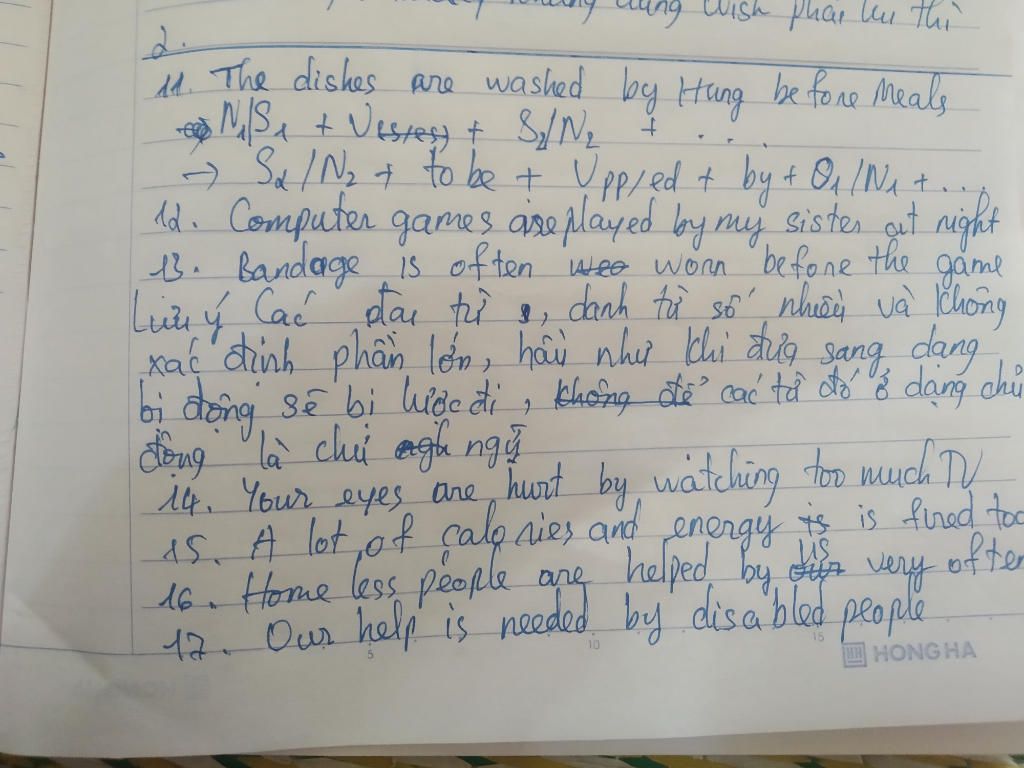 dùng wish phải lùi thì
2.
11. The dishes are washed by Hung before Meals
N1/S1 + V(s/es) + S2/N2 + ...
→ S2/N2 + to be + Vpp/ed + by + O1/N1 + ...
12. Computer games are played by my sister at night
13. Bandage is often worn before the game
Lưu ý Các đại từ, danh từ số nhiều và không
xác định phần lớn, hầu như khi đưa sang dạng
bị động sẽ bị lược đi, không để các từ đó ở dạng chủ
động là chủ ngữ
14. Your eyes are hurt by watching too much TV
15. A lot of calories and energy is is fired too
16. Home less people are helped by us very often
17. Our help is needed by disabled people
5 10 15
HONG HA